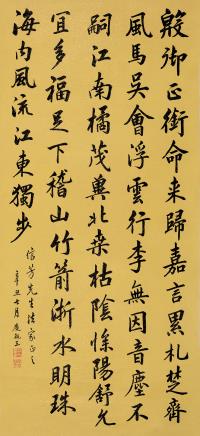 殷御正銜命来歸嘉言累札楚齊
風馬吳會浮雲行李無因音塵不
嗣江南橘茂冀北桑枯陰慘陽舒允
宜多福足下稽山竹箭浙水明珠
海内風流江東獨步
信芳先生法家正之
辛丑七月